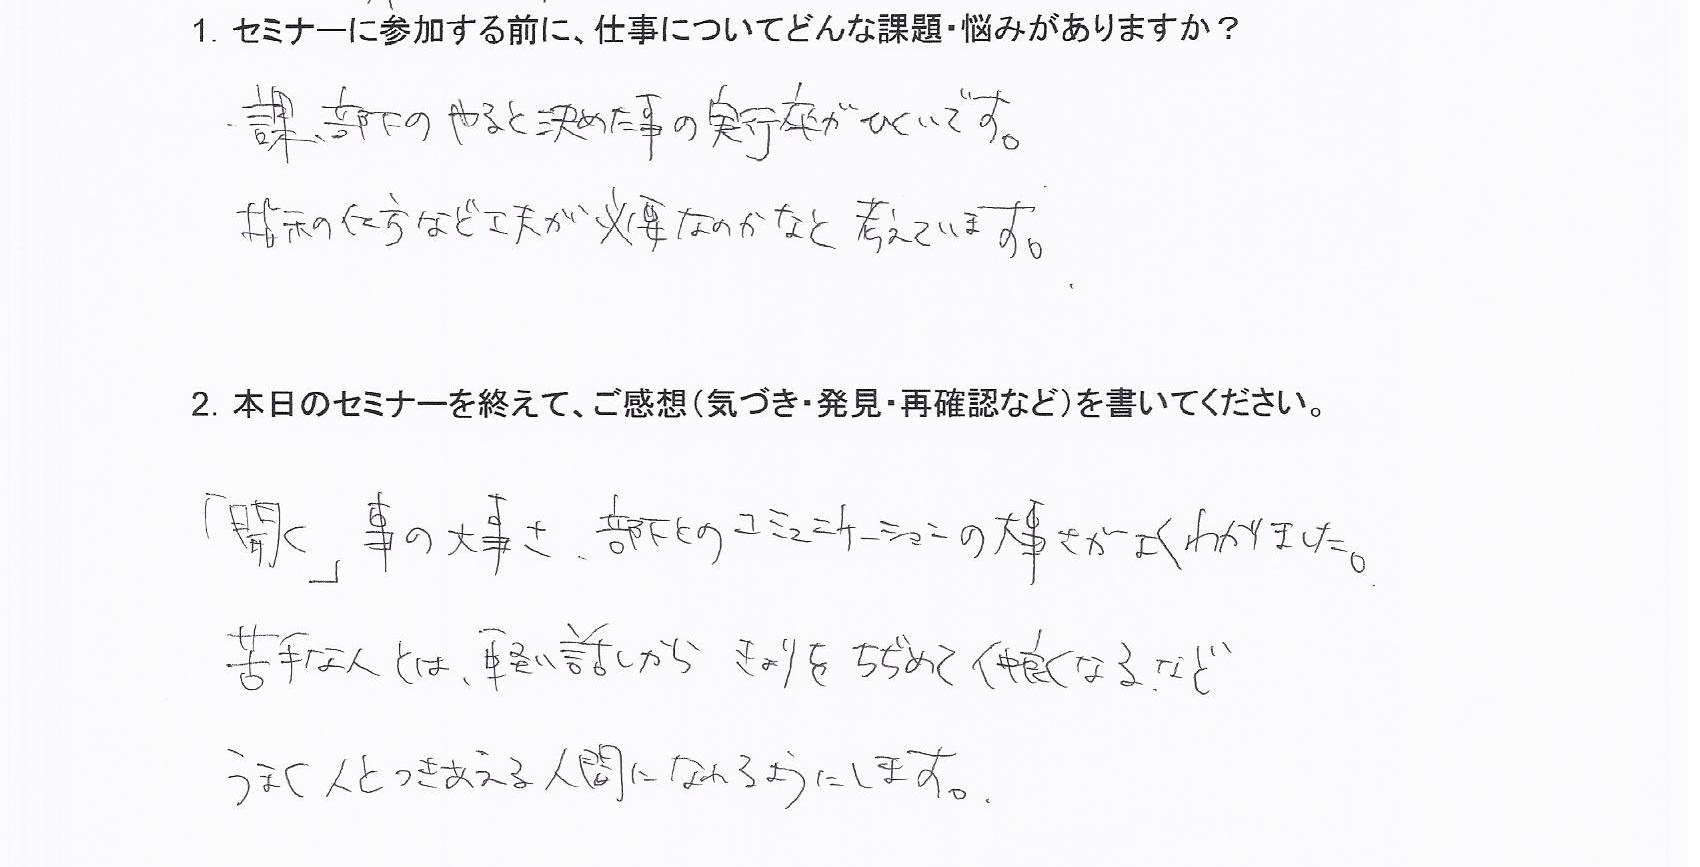 1. セミナーに参加する前に、仕事についてどんな課題・悩みがありますか？
課、部下のやると決めた事の実行率がひくいです。
指示の仕方など工夫が必要なのかなと考えています。
2. 本日のセミナーを終えて、ご感想（気づき・発見・再確認など）を書いてください。
「聞く」事の大事さ、部下とのコミュニケーションの大事さがよくわかりました。
苦手な人とは、軽い話しからきょりをちぢめて仲良くなる、など
うまく人とつきあえる人間になれるようにします。